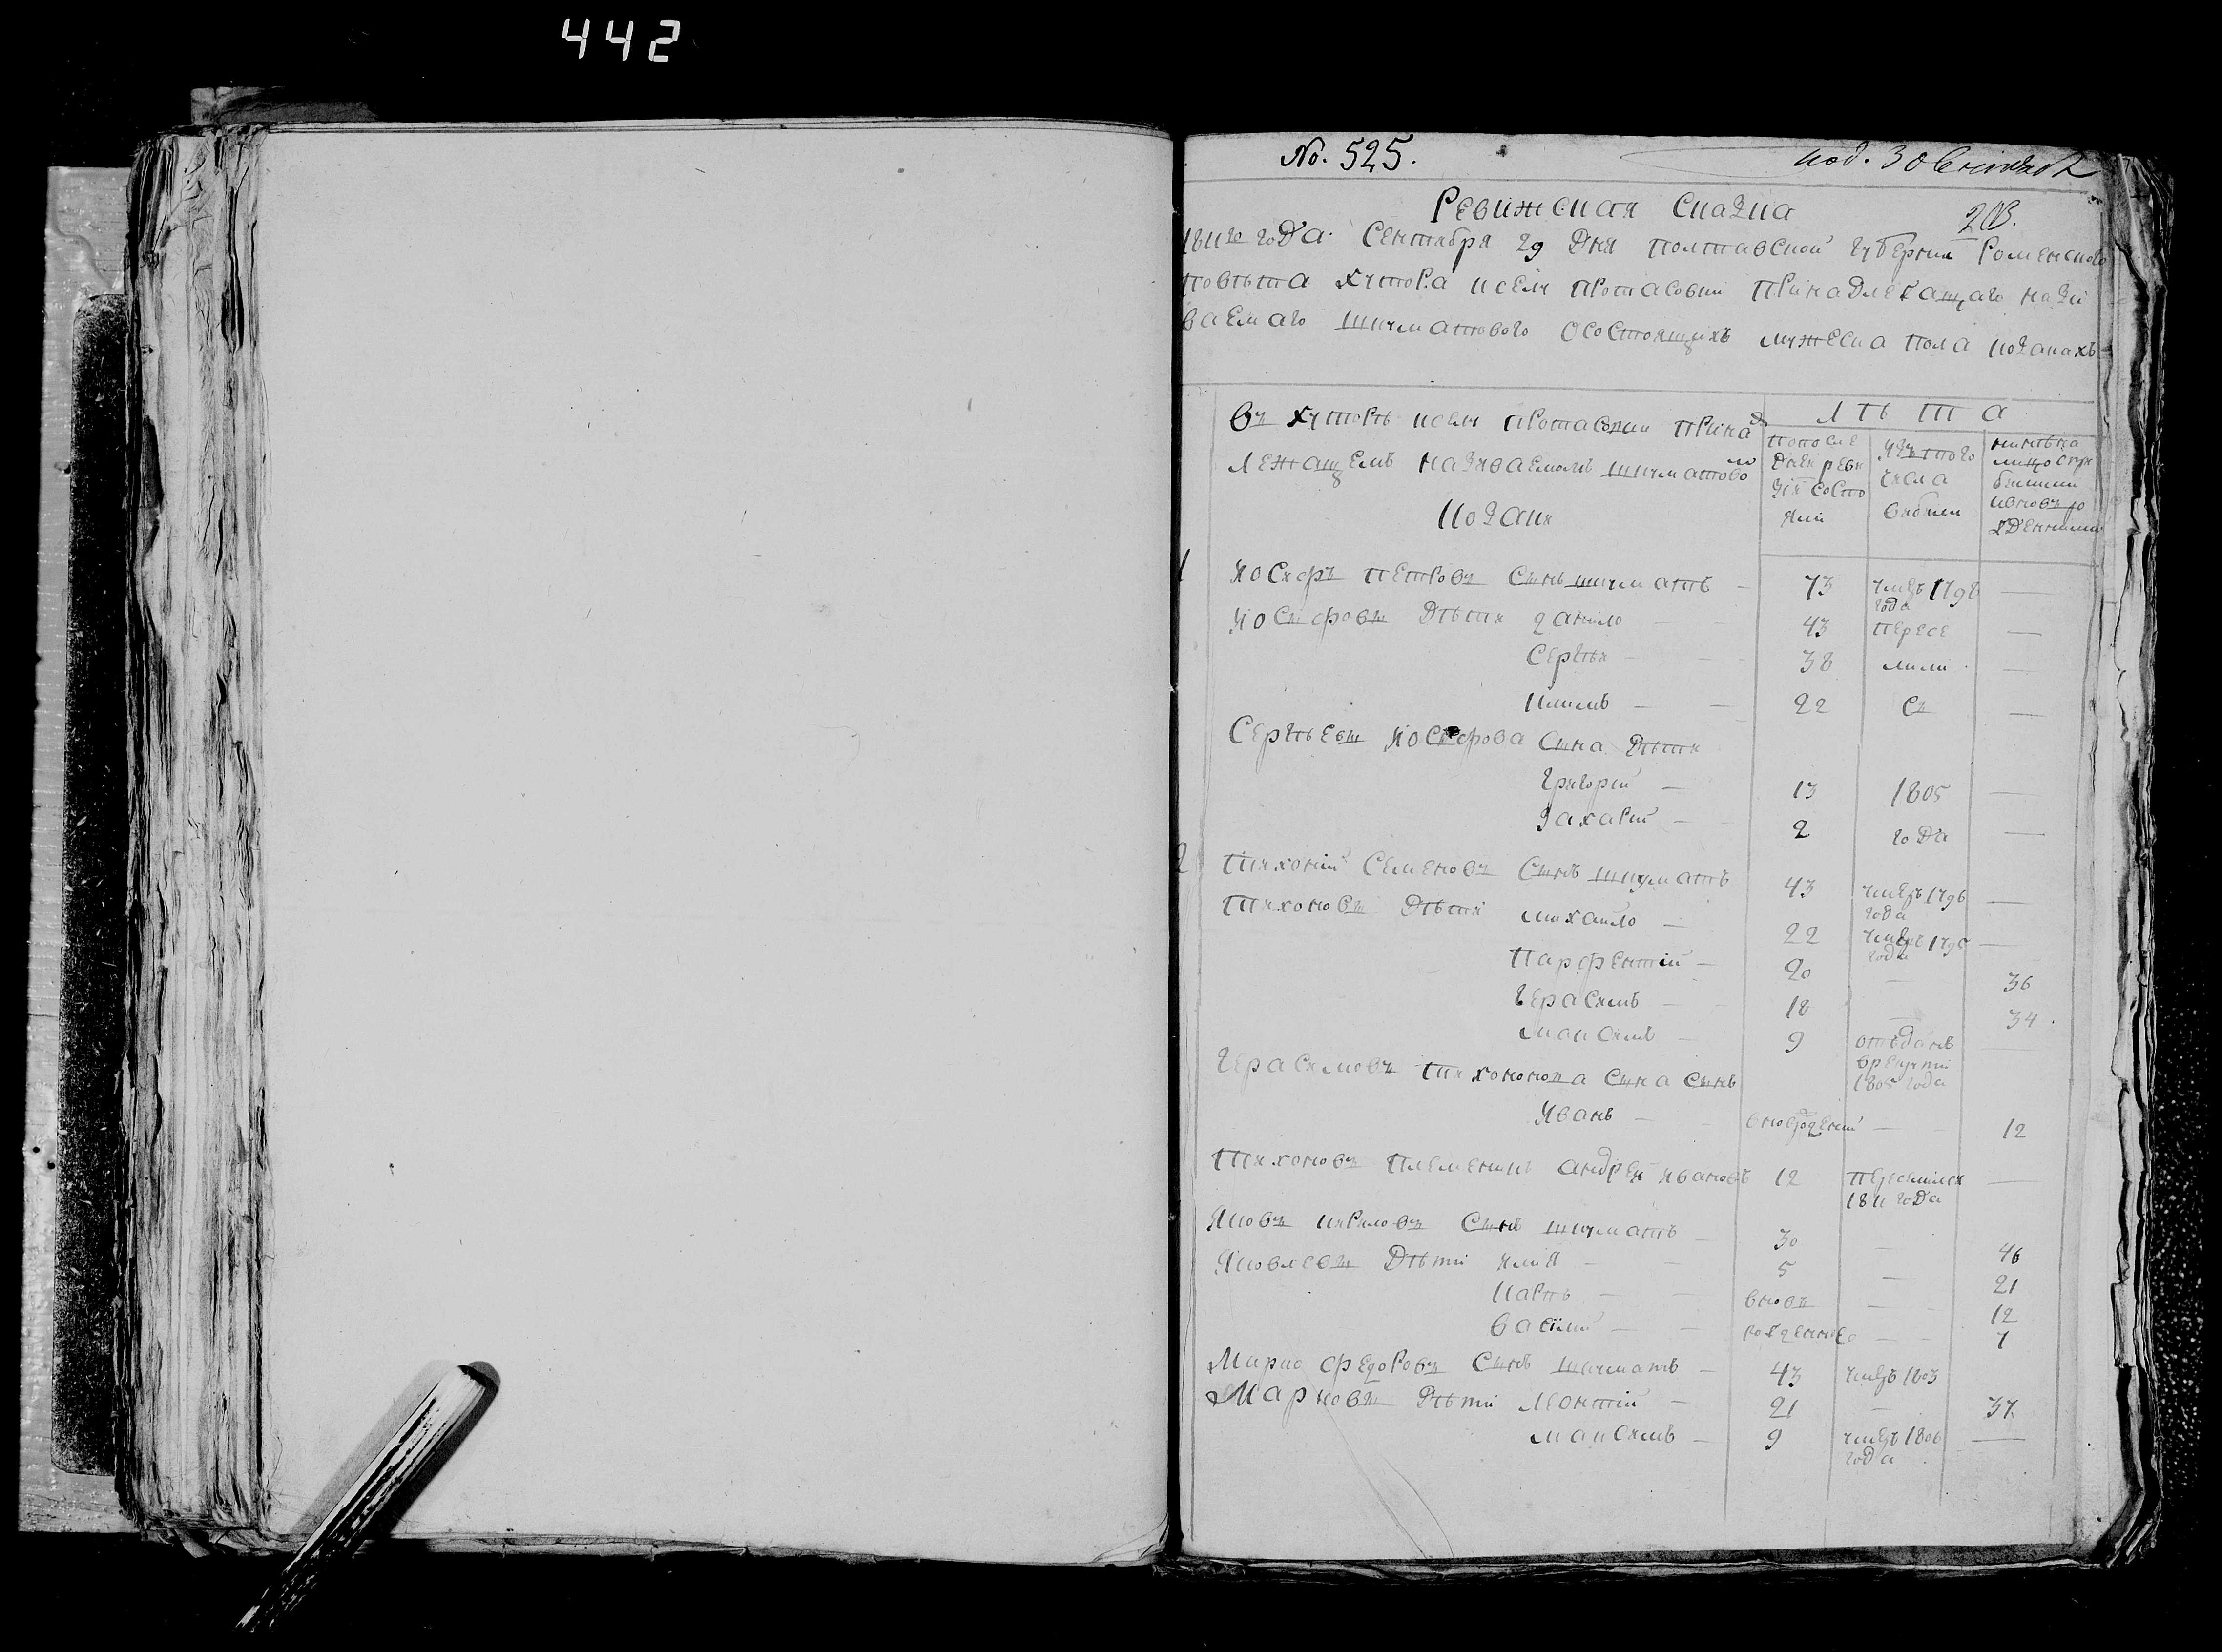 442
No. 525.
под. 30
203.
Ревижская Сказка
1811го года Сентября 29 Дня Полтавской губернии Роменского
повѣта хутора къ селу Протасовки принадлежащаго назы
ваемаго Шкуматового о состоящихъ мужеска пола козакахъ
Въ хуторѣ къ селу Протасовки принад
лежащемъ называемомъ Шкуматово
мъ
Козаки
лѣта
попосле
дней реви
зіи состо
яли
изъ того
числа
выбыли
нынѣ на
лицо съ при
бывшими
и вновь ро
жденными
1 Иосифъ Петровъ Сынъ Шкуматъ — 73 умеръ 1798 года —
Иосифовы Дѣти Данило — 43 пересе —
Сергѣй — 38 лили —
Климъ — 22 Сь —
Сергѣевы Иосифова Сына Дѣти
Григорій — 13 1805 —
Захарий — 2 года —
2 Тихоній Семеновъ Сынъ Шкуматъ 43 умеръ 1796 года —
Тихоновы Дѣти Михайло — 22 умеръ 1795 года —
Парфентій — 20 — 36
Герасимъ — 18 — 34
Максимъ — 9 отъданъ в рекруты 1805 года —
Герасимовъ Тихонова Сына Сынъ
Иванъ — вноврожденый — 12
Тихоновъ Племенникъ Андрей Ивановъ 12 переселился 1811 года —
Яковъ Кириловъ Сынъ Шкуматъ — 30 — 46
Яковлевы Дѣти Илия — 5 — 21
Карпъ — вновь — 12
Василий — рожденные — 7
Марко Федоровъ Сынъ Шкуматъ — 43 умеръ 1803
Марковы Дѣти Леонтій — 21 — 37
Максимъ — 9 умеръ 1806 года —